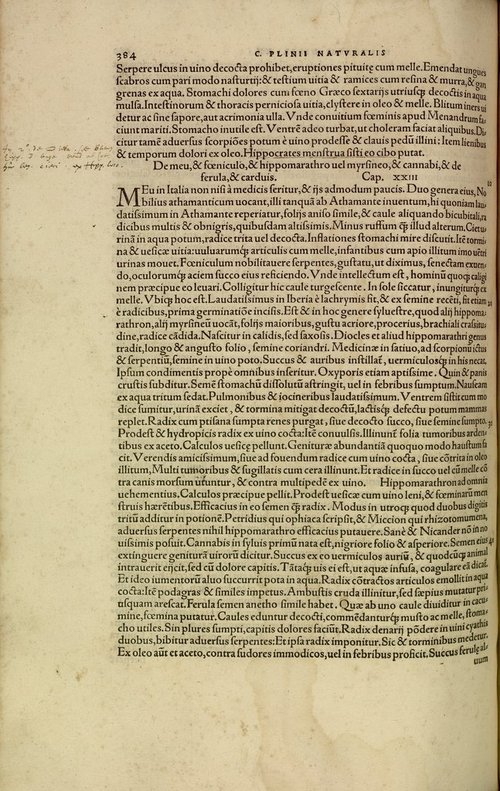 384 C. PLINII NATVRALIS
Serpere ulcus in uino decocta prohibet, eruptiones pituitę cum melle. Emendat ungues
scabros cum pari modo nasturtij: & testium uitia & ramices cum resina & murra, & gan
grenas ex aqua. Stomachi dolores cum fœno Græco sextarijs utriusq; decoctis in aqua
mulsa. Intestinorum & thoracis perniciosa uitia, clystere in oleo & melle. Blitum iners ui
detur ac sine sapore, aut acrimonia ulla. Vnde conuitium fœminis apud Menandrum fa
ciunt mariti. Stomacho inutile est. Ventrē adeo turbat, ut choleram faciat aliquibus. Di
citur tamē aduersus scorpiões potum è uino prodesse & clauis pedū illini: Item lienibus
& temporum dolori ex oleo. Hippocrates menstrua sisti eo cibo putat.
De meu, & fœniculo, & hippomarathro uel myrsineo, & cannabi, & de
ferula, & carduis. Cap. XXIII
MEu in Italia non nisi à medicis seritur, & ijs admodum paucis. Duo genera eius, No
bilius athamanticum uocant, illi tanquā ab Athamante inuentum, hi quoniam lau
datissimum in Athamante reperiatur, folijs aniso simile, & caule aliquando bicubitali, ra
dicibus multis & obnigris, quibusdam altissimis. Minus ruffum q̃ illud alterum. Ciet u
rinā in aqua potum, radice trita uel decocta. Inflationes stomachi mire discutit. Itē tormi
na & uesicæ uitia: uuluarumq; articulis cum melle, infantibus cum apio illitum imo uētri
urinas mouet. Fœniculum nobilitauere serpentes, gustatu, ut diximus, senectam exuen
do, oculorumq; aciem succo eius reficiendo. Vnde intellectum est, hominū quoq; caligi
nem præcipue eo leuari. Colligitur hic caule turgescente. In sole siccatur, inungiturq; ex
melle. Vbiq; hoc est. Laudatissimus in Iberia è lachrymis fit, & ex semine recēti, fit etiam
è radicibus, prima germinatiōe incisis. Est & in hoc genere sylueste, quod alij hippoma
rathron, alij myrsineū uocāt, folijs maioribus, gustu acriore, procerius, brachiali crassitu
dine, radice cādida. Nascitur in calidis, sed saxosis. Diocles et aliud hippomarathri genus
tradit, longo & angusto folio, semine coriandri. Medicinæ in satiuo, ad scorpionū ictus
& serpentiū, semine in uino poto. Succus & auribus instillat̃, uermiculosq; in his necat.
Ipsum condimentis propè omnibus inseritur. Oxyporis etiam aptissime. Quin & panis
crustis subditur. Semē stomachū dissolutū astringit, uel in febribus sumptum. Nauseam
ex aqua tritum sedat. Pulmonibus & iocineribus laudatissimum. Ventrem sistit cum mo
dice sumitur, urinā exciet, & tormina mitigat decoctū, lactisq; defectu potum mammas
replet. Radix cum ptisana sumpta renes purgat, siue decocto succo, siue semine sumpto.
Prodest & hydropicis radix ex uino cocta: Itē conuulsis. Illinunt̃ folia tumoribus arden
tibus ex aceto. Calculos uesicę pellunt. Genituræ abundantiā quoquo modo haustum fa
cit. Verendis amicissimum, siue ad fouendum radice cum uino cocta, siue cōtrita in oleo
illitum, Multi tumoribus & sugillatis cum cera illinunt. Et radice in succo uel cū melle cō
tra canis morsum utuntur, & contra multipedē ex uino. Hippomarathron ad omnia
uehementius. Calculos præcipue pellit. Prodest uesicæ cum uino leni, & fœminarū men
struis hærētibus. Efficacius in eo semen q̃ radix. Modus in utroq; quod duobus digitis
tritū additur in potionē. Petridius qui ophiaca scripsit, & Miccion qui rhizotomumena,
aduersus serpentes nihil hippomarathro efficacius putauere. Sanè & Nicander nō in no
uissimis posuit. Cannabis in syluis primū nata est, nigriore folio & asperiore. Semen eius
extinguere genituram uirorū dicitur. Succus ex eo uermiculos auriū, & quodcūq; animal
intrauerit eijcit, sed cū dolore capitis. Tātaq; uis ei est, ut aquæ infusa, coagulare eā dicat̃.
Et ideo iumentorū aluo succurrit pota in aqua. Radix cōtractos articulos emollit in aqua
cocta: Itē podagras & similes impetus. Ambustis cruda illinitur, sed sæpius mutatur pri
usquam arescat. Ferula semen anetho simile habet. Quæ ab uno caule diuiditur in cacu
mine, fœmina putatur. Caules eduntur decocti, commēdanturq; musto ac melle, stoma
cho utiles. Sin plures sumpti, capitis dolores faciūt. Radix denarij pōdere in uini cyathis
duobus, bibitur aduersus serpentes: Et ipsa radix imponitur. Sic & torminibus medetur.
Ex oleo aūt et aceto, contra sudores immodicos, uel in febribus proficit. Succus ferulę alu
uum